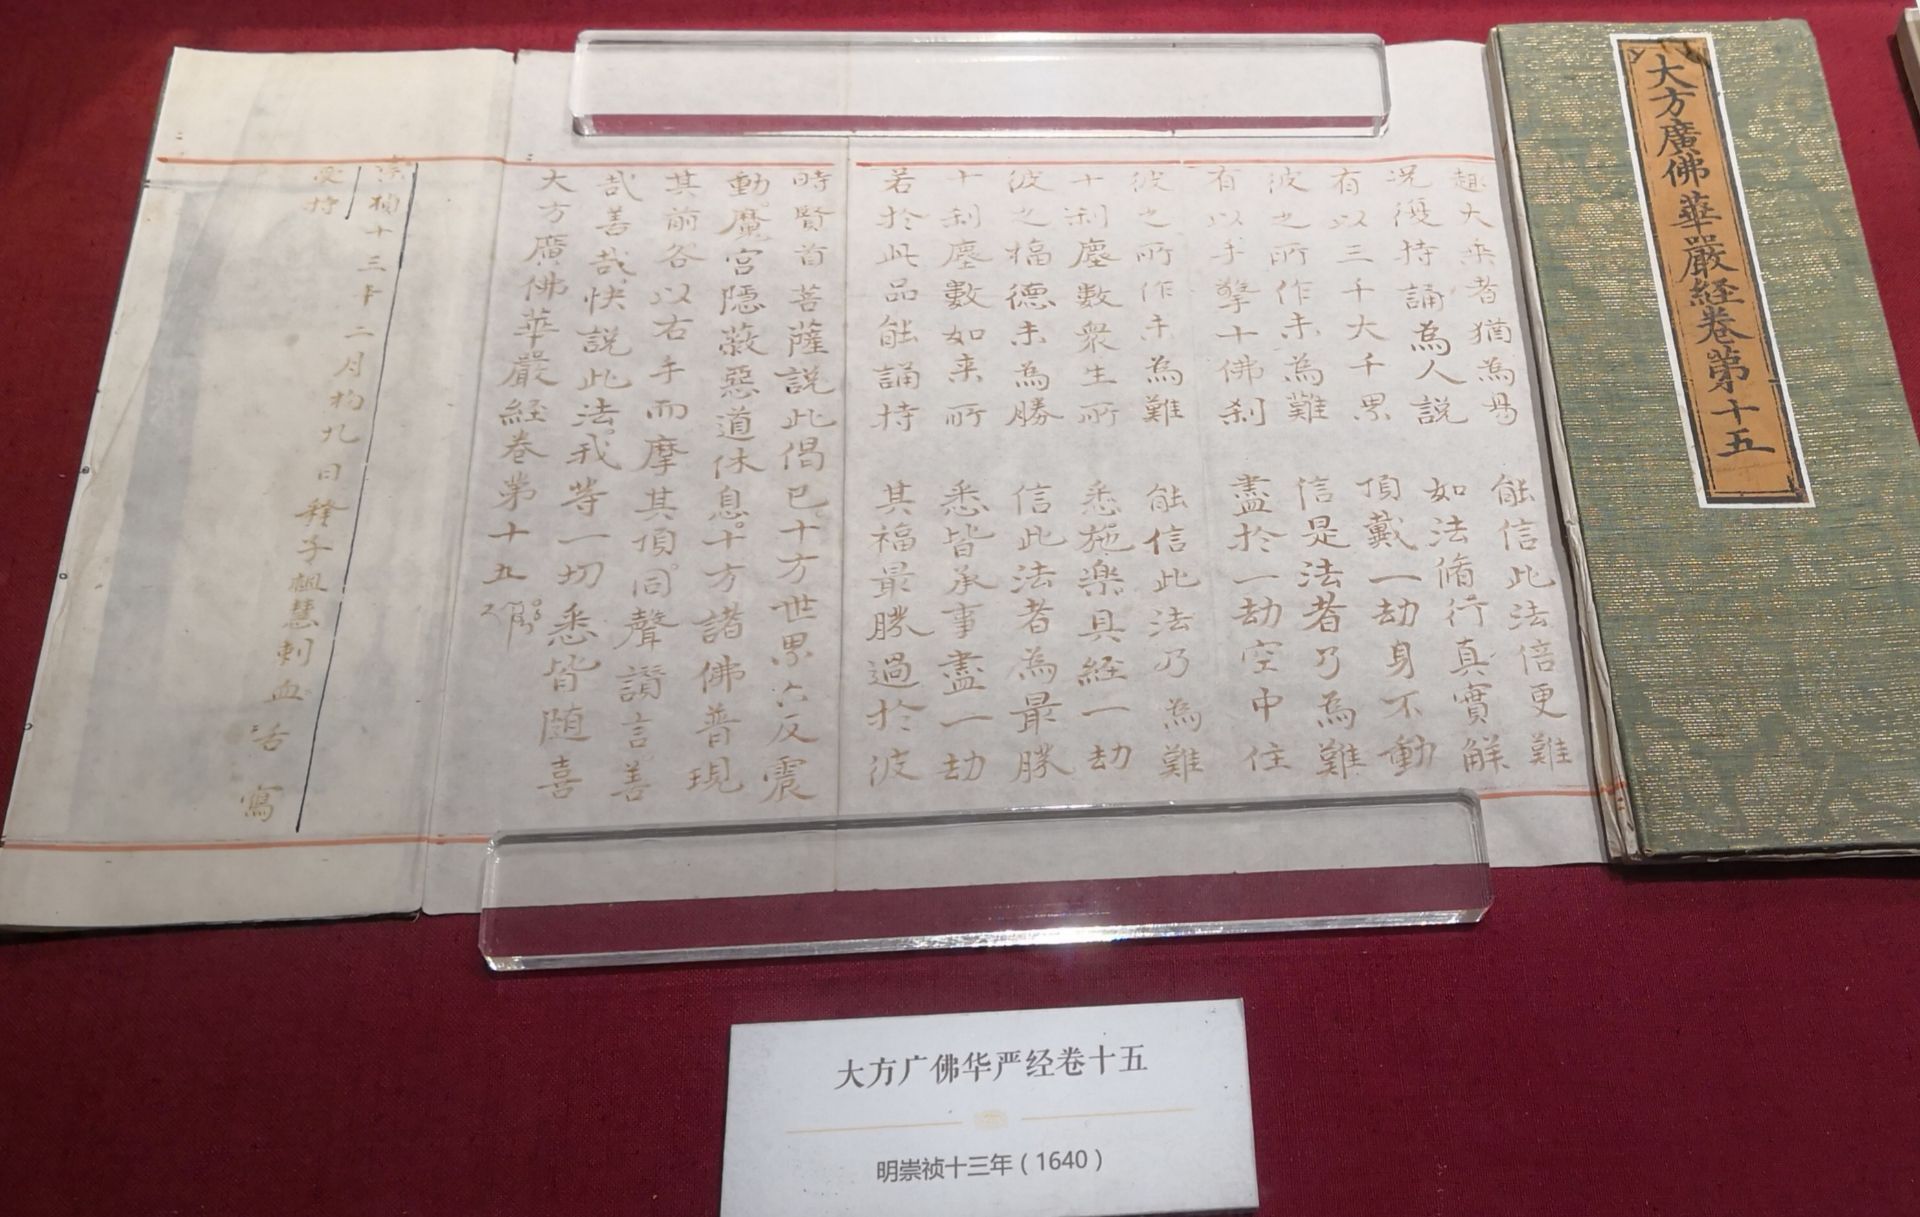 大方廣佛華嚴経卷第十五
趣大乘者猶為易 能信此法倍更難
况復持誦為人説 如法脩行真實解
有以三千大千界 頂戴一劫身不動
彼之所作未為難 信是法者乃為難
有以手擎十佛刹 盡於一劫空中住
彼之所作未為難 能信此法乃為難
十刹塵數衆生所 悉施楽具経一劫
彼之福德未為勝 信此法者為最勝
十刹塵數如来所 悉皆承事盡一劫
若於此品能誦持 其福最勝過於彼
時賢首菩薩説此偈已十方世界六反震
動魔宮隱蔽惡道休息十方諸佛普現
其前各以右手而摩其頂同聲讃言善
哉善哉快説此法我等一切悉皆随喜
大方廣佛華嚴経卷第十五
崇禎十三年二月初九日釋子楓慧刺血沽寫
受持
大方广佛华严经卷十五
明崇祯十三年（1640）